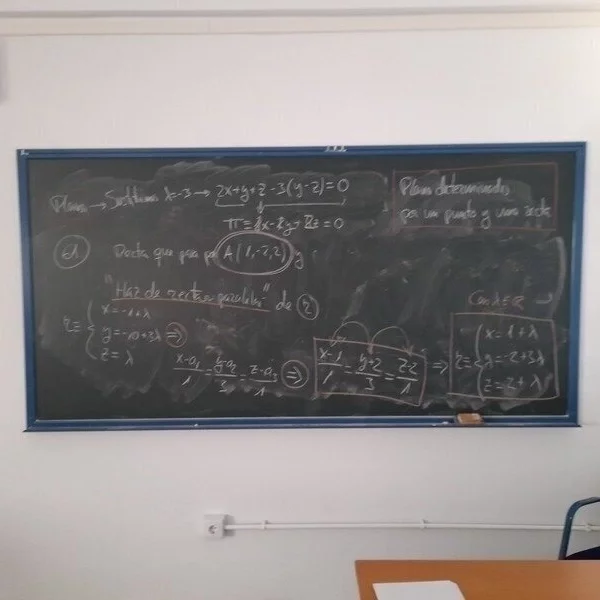 Plano → Sustituimos λ=-3 → 2x+y+z-3(y-z)=0
π≡2x-2y+4z=0
Plano determinado
por un punto y una recta
Recta que pasa por A(1,-2,2) y
"Haz de rectas paralelas" de r
r≡ { x=-1+λ
y=-10+3λ ⇒
z=λ
x-a₁/1 = y-a₂/3 = z-a₃/1 ⇒ x-1/1 = y+2/3 = z-2/1 ⇒
Con λ∈R
r≡ { x=1+λ
y=-2+3λ
z=2+λ